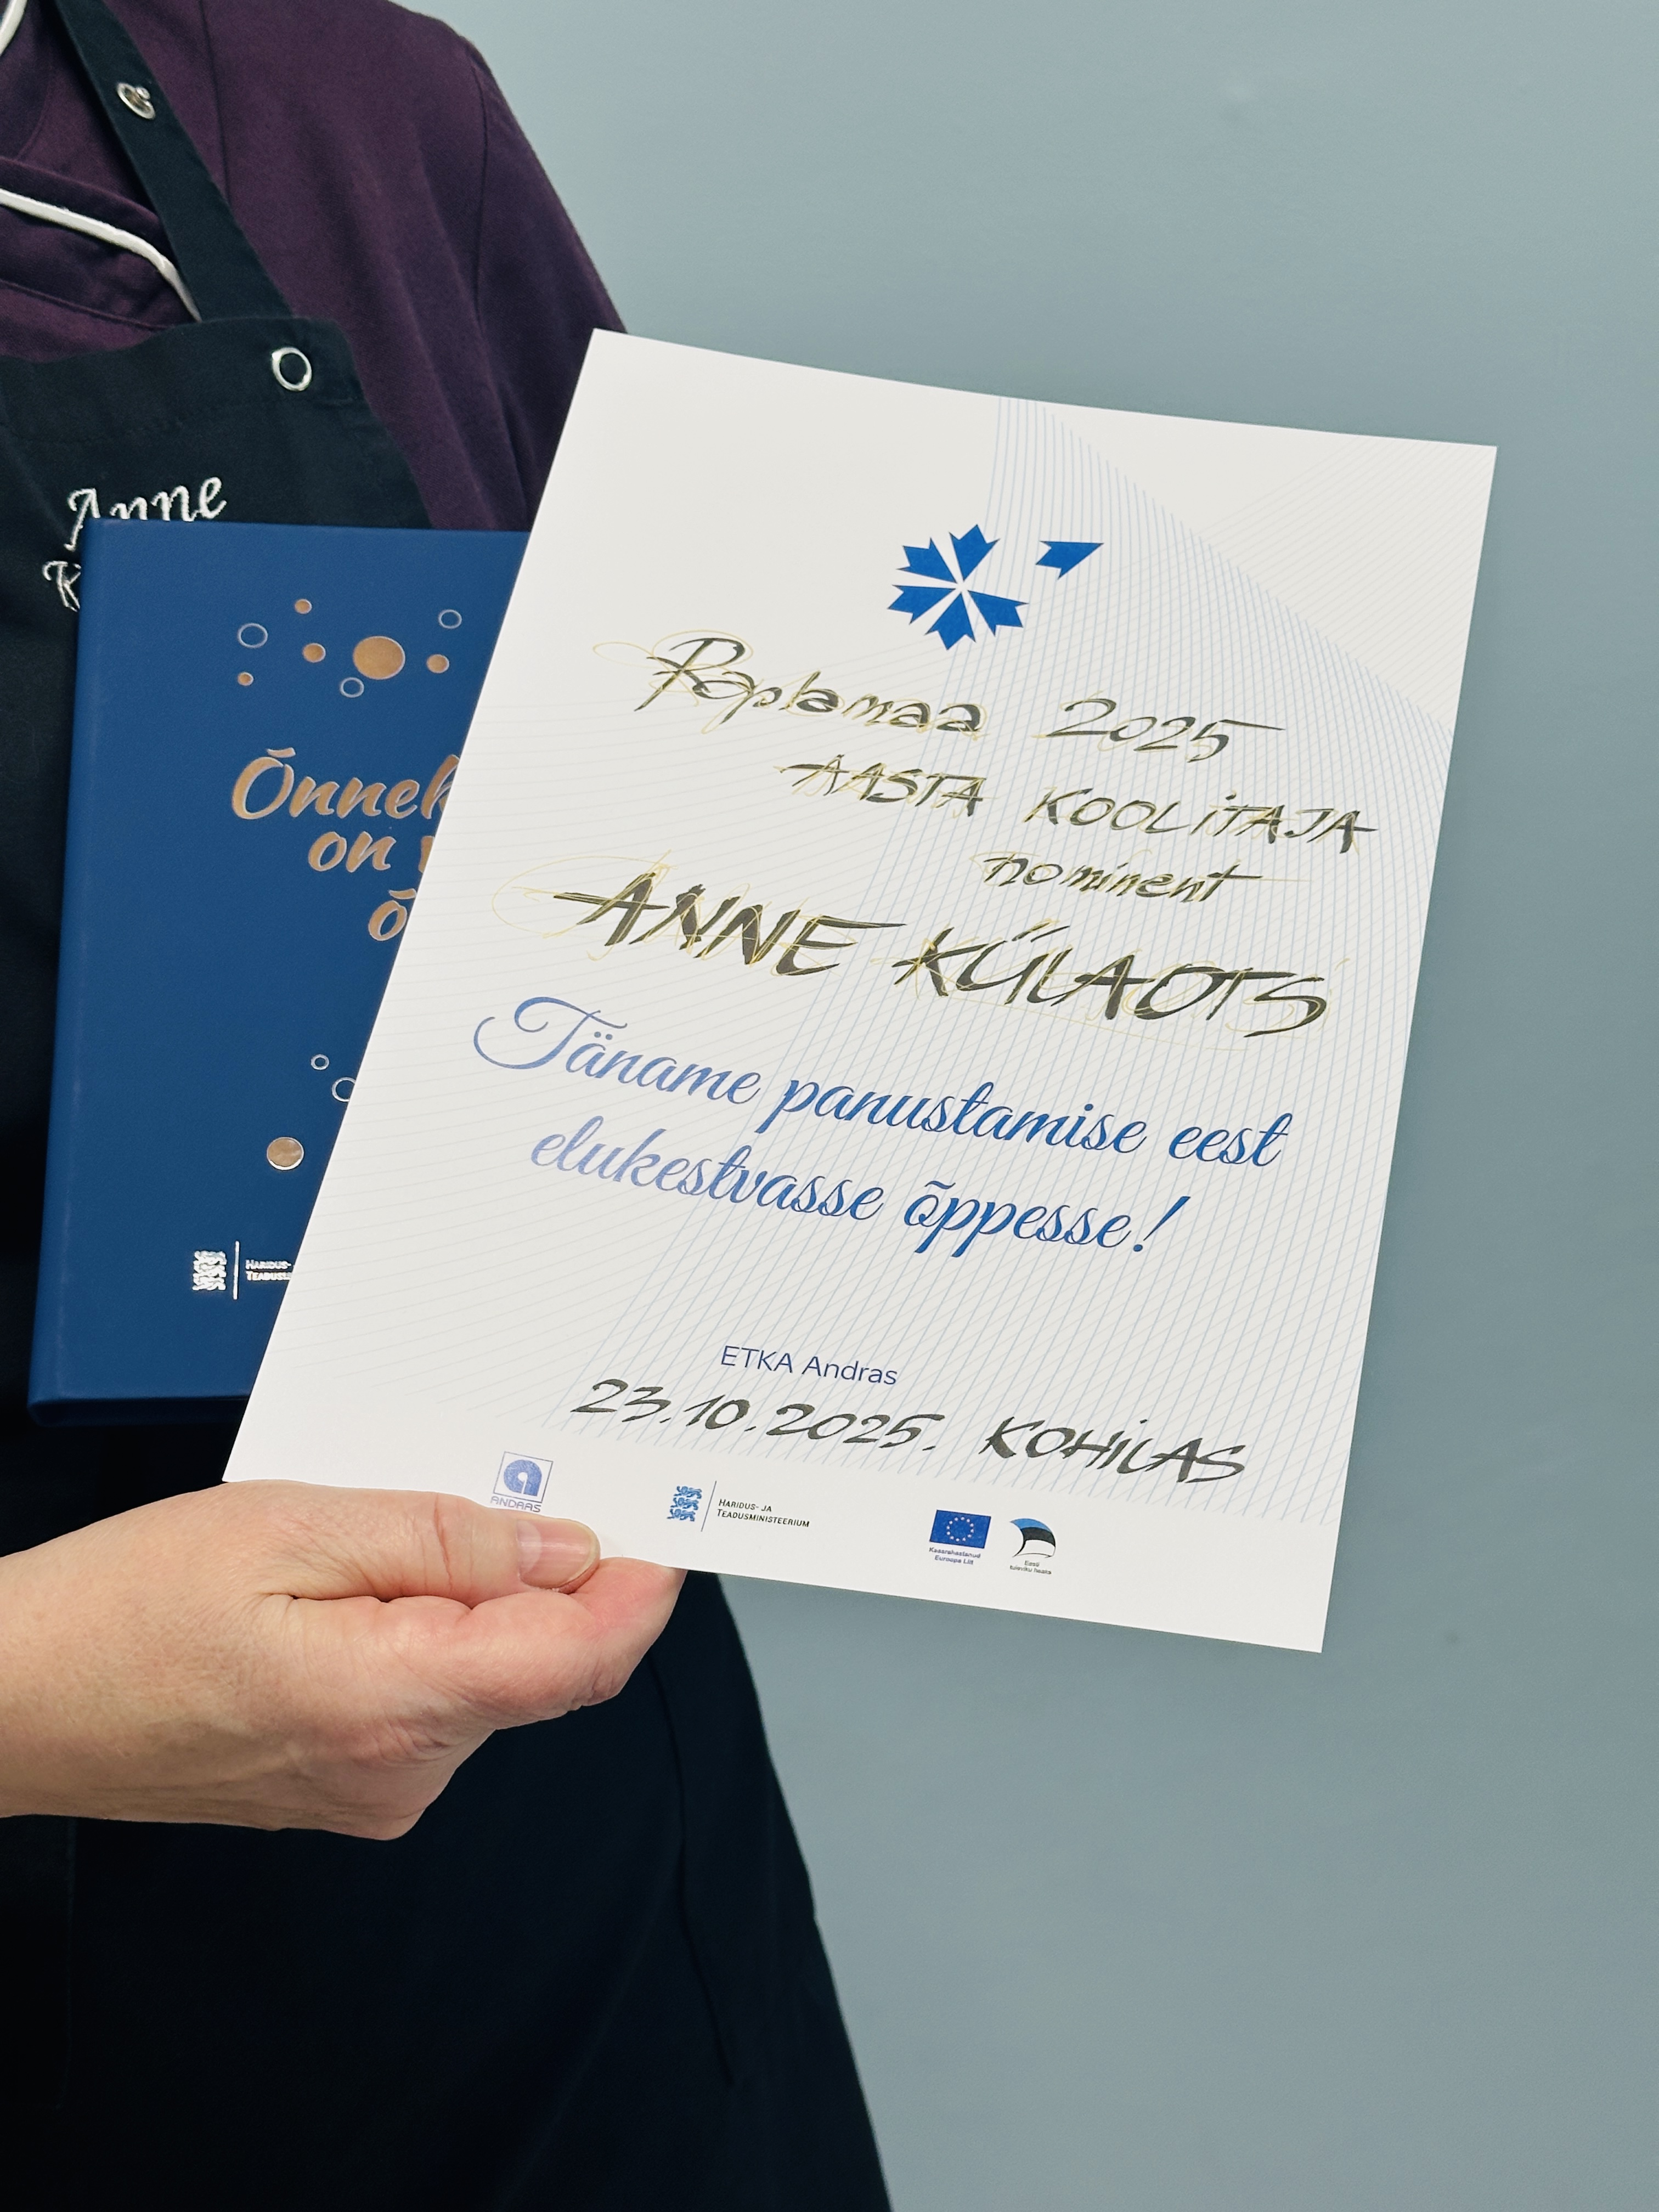 Anne
K
Õnnek
on
õ
HARIDUS-
TEADUSM
Raplamaa 2025
AASTA KOOLITAJA
nominent
ANNE KÜLAOTS
Täname panustamise eest
elukestvasse õppesse!
ETKA Andras
23.10.2025. KOHILAS
ANDRAS
HARIDUS- JA
TEADUSMINISTEERIUM
Kaasrahastanud
Euroopa Liit
Eesti
tuleviku heaks